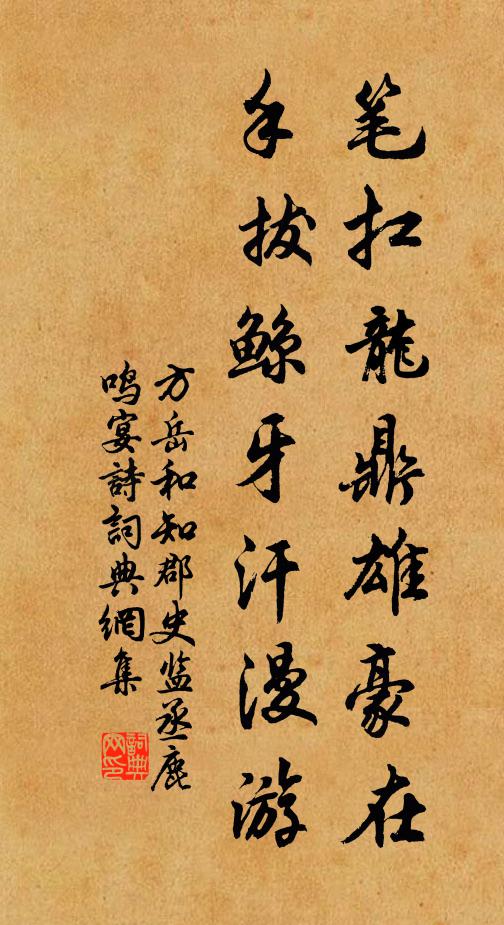 笔扛龍鼎雄豪在
手拔鲸牙汗漫游
方岳和知郡史监丞鹿
鸣宴詩詞典網集
詞典
网印